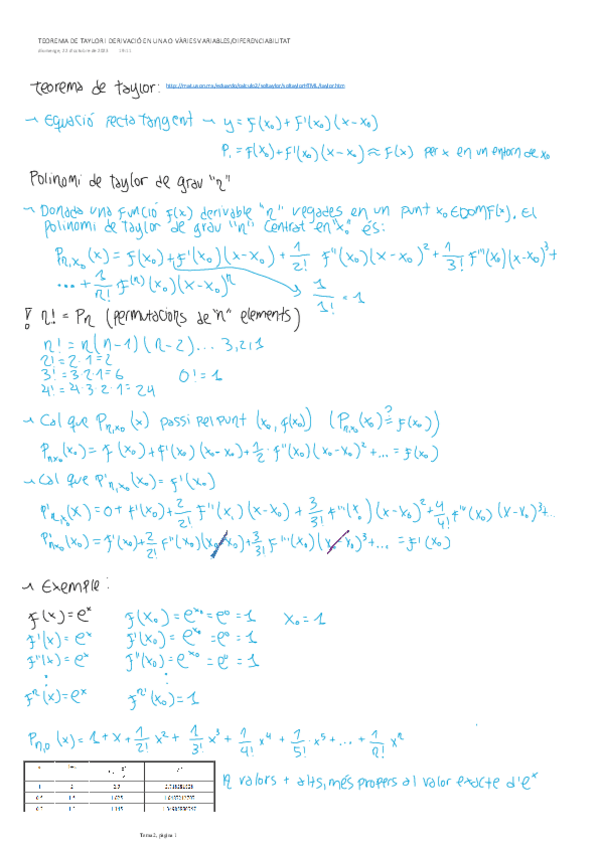 TEOREMA DE TAYLOR I DERIVACIÓ EN UNA O VÀRIES VARIABLES/DIFERENCIABILITAT
diumenge, 22 d'octubre de 2023 19:11
teorema de taylor:
→ Equació recta tangent → y = f(x₀) + f'(x₀)(x-x₀)
P₁ = f(x₀) + f'(x₀)(x-x₀) ≈ f(x) per x en un entorn de x₀
Polinomi de taylor de grau "n"
→ Donada una funció f(x) derivable "n" vegades en un punt x₀ ∈ Domf(x), El
polinomi de Taylor de grau "n" centrat en "x₀" és:
Pn,x₀(x) = f(x₀) + f'(x₀)(x-x₀) + 1/2! f''(x₀)(x-x₀)² + 1/3! f'''(x₀)(x-x₀)³ +
... + 1/n! f⁽ⁿ⁾(x₀)(x-x₀)ⁿ 1/1! = 1
! n! = Pn (permutacions de "n" elements)
n! = n(n-1)(n-2)... 3,2,1
2! = 2·1 = 2
3! = 3·2·1 = 6 0! = 1
4! = 4·3·2·1 = 24
→ Cal que Pn,x₀(x) passi pel punt (x₀, f(x₀)) (Pn,x₀(x₀) =? f(x₀))
Pn,x₀(x₀) = f(x₀) + f'(x₀)(x₀-x₀) + 1/2 · f''(x₀)(x₀-x₀)² + ... = f(x₀)
→ Cal que P'n,x₀(x₀) = f'(x₀)
P'n,x₀(x) = 0 + f'(x₀) + 2/2! f''(x₀)(x-x₀) + 3/3! f'''(x₀)(x-x₀)² + 4/4! f''''(x₀)(x-x₀)³ + ...
P'n,x₀(x₀) = f'(x₀) + 2/2! f''(x₀)(x₀-x₀) + 3/3! f'''(x₀)(x₀-x₀)³ + ... = f'(x₀)
→ Exemple:
f(x) = eˣ f(x₀) = eˣ⁰ = e⁰ = 1 x₀ = 1
f'(x) = eˣ f'(x₀) = eˣ⁰ = e⁰ = 1
f''(x) = eˣ f''(x₀) = eˣ⁰ = e⁰ = 1
: :
fⁿ(x) = eˣ fⁿ'(x₀) = 1
Pn,0(x) = 1 + x + 1/2! x² + 1/3! x³ + 1/4! x⁴ + 1/5! · x⁵ + ... + 1/n! xⁿ
n valors + alts, més propers al valor exacte d'eˣ
Tema 2, pàgina 1